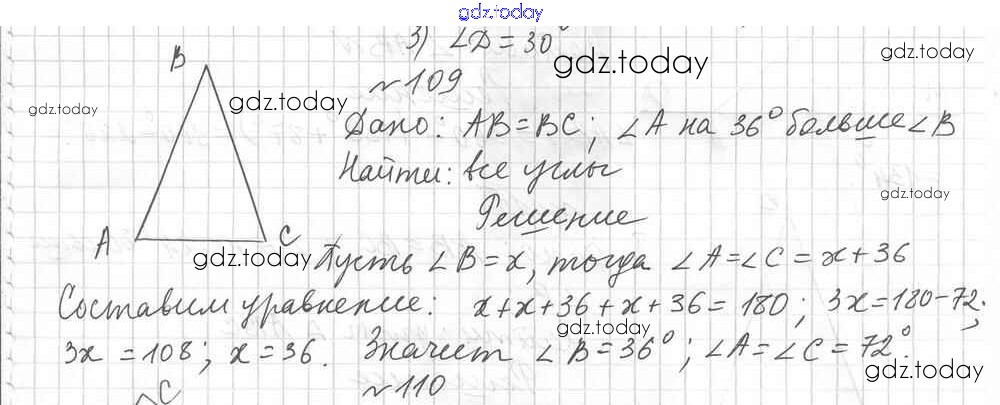 gdz.today
3) ∠D = 30°
gdz.today
gdz.today
№109
gdz.today
gdz.today
B
Дано: AB = BC; ∠A на 36° больше ∠B
Найти: все углы
gdz.today
Решение
A C
gdz.today
Пусть ∠B = x, тогда ∠A = ∠C = x + 36
Составим уравнение: x + x + 36 + x + 36 = 180; 3x = 180 - 72;
gdz.today
3x = 108; x = 36. Значит ∠B = 36°; ∠A = ∠C = 72°
gdz.today
№110
C